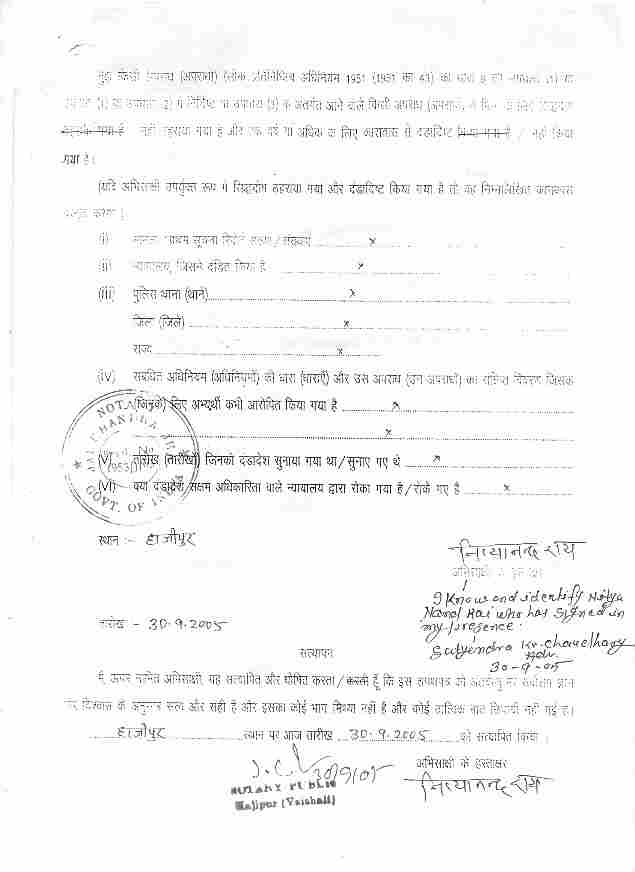 मुझे किसी अपराध (अपराधों) (लोक प्रतिनिधित्व अधिनियम 1951 (1951 का 43) की धारा 8 की उपधारा (1) या
उपधारा (2) में निर्दिष्ट या उपधारा (3) के अंतर्गत आने वाले किसी अपराध
नहीं ठहराया गया है और एक वर्ष या अधिक के लिए कारावास से दंडादिष्ट किया गया है / नहीं किया
गया है।
(यदि अभिसाक्षी उपर्युक्त रूप में सिद्धदोष ठहराया गया और दंडादिष्ट किया गया है तो वह निम्नलिखित
प्रस्तुत करेगा)
(i) प्रथम सूचना रिपोर्ट संख्या/संख्याएं x
(ii) न्यायालय, जिसने दंडित किया है x
(iii) पुलिस थाना (थाने) x
जिला (जिले) x
राज्य x
(iv) संबंधित अधिनियम (अधिनियमों) की धारा (धाराएँ) और उस अपराध (उन अपराधों) का संक्षिप्त विवरण जिसके
(जिनके) लिए अभ्यर्थी कभी आरोपित किया गया है x
x
(V) तारीख (तारीखें) जिनको दंडादेश सुनाया गया था/सुनाए गए थे x
(VI) क्या दंडादेश सक्षम अधिकारिता वाले न्यायालय द्वारा रोका गया है/रोके गए है x
GOVT. OF INDIA
स्थान :- हाजीपुर
नित्यानन्द राय
अभिसाक्षी के हस्ताक्षर
I Know and identify Nitya
Nand Rai who has signed in
my presence.
Satyendra Kr. Chaudhary
Adv.
30-9-05
तारीख - 30.9.2005
सत्यापन
मैं, ऊपर नामित अभिसाक्षी, यह सत्यापित और घोषित करता/करती हूँ कि इस शपथपत्र की अंतर्वस्तु मेरे सर्वोत्तम ज्ञान
और विश्वास के अनुसार सत्य और सही है और इसका कोई भाग मिथ्या नहीं है और कोई तात्विक बात छिपायी नहीं गई है।
हाजीपुर स्थान पर आज तारीख 30.9.2005 को सत्यापित किया।
अभिसाक्षी के हस्ताक्षर
नित्यानन्द राय
30/9/05
NOTARY PUBLIC
Hajipur (Vaishali)